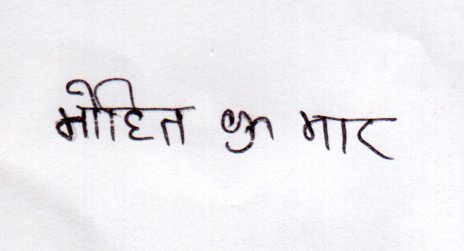 मोहित कुमार